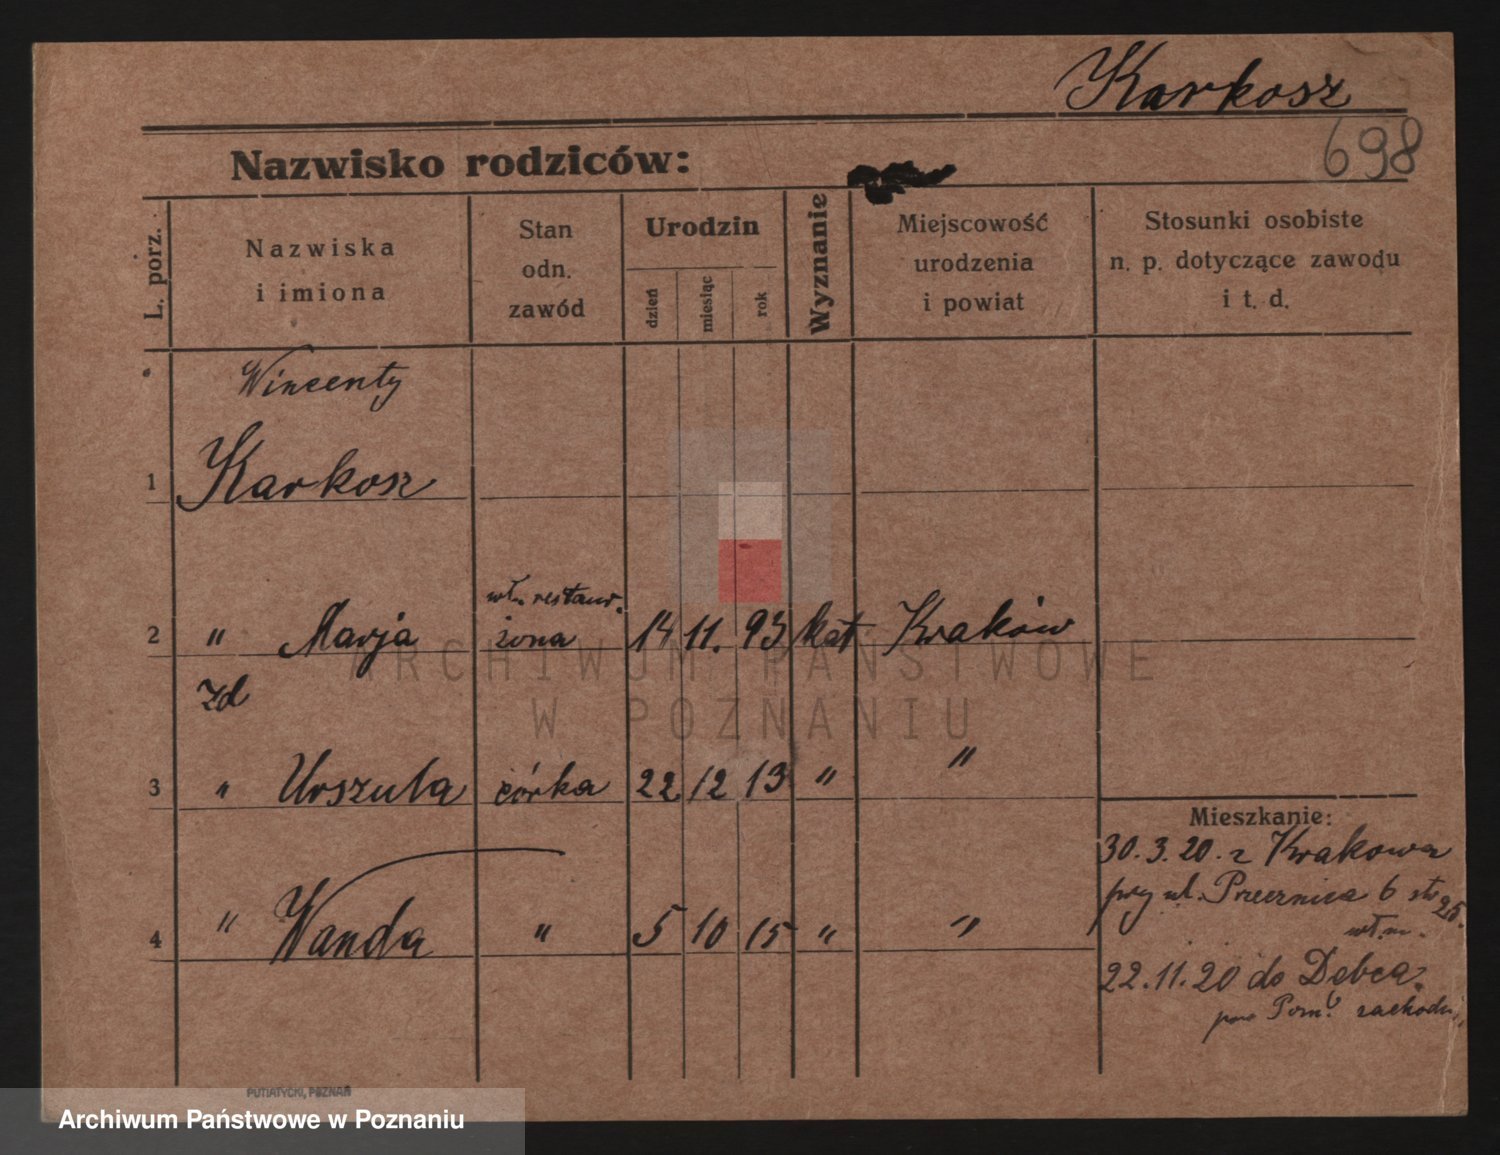 Karkosz
698
Nazwisko rodziców:
L. porz.
Nazwiska
i imiona
Stan
odn.
zawód
Urodzin
dzień
miesiąc
rok
Wyznanie
Miejscowość
urodzenia
i powiat
Stosunki osobiste
n. p. dotyczące zawodu
i t. d.
Wincenty
1 Karkosz
wł. restaur.
2 " Marja żona 14 11. 93 kat Kraków
zd
3 " Urszula córka 22 12 13 " "
Mieszkanie:
30. 3. 20. z Krakowa
przy ul. Przecznica 6 st 25.
4 " Wanda " 5 10 15 " "
22. 11. 20 do Dębca
pow zachodni
PUTIATYCKI, POZNAŃ
ARCHIWUM PAŃSTWOWE
W POZNANIU
Archiwum Państwowe w Poznaniu